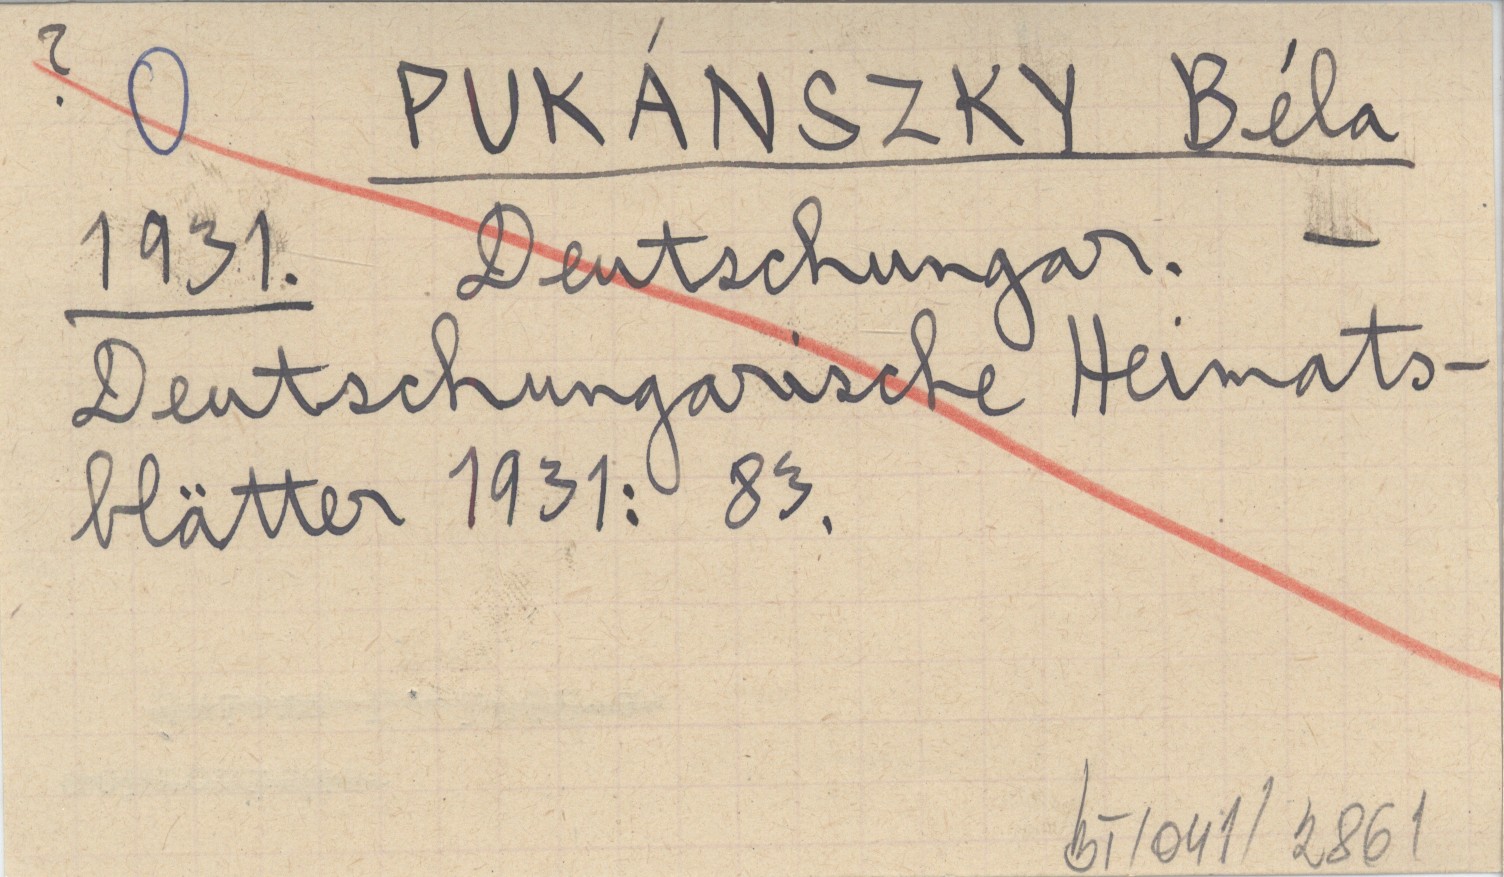 ? O PUKÁNSZKY Béla
1931. Deutschungar. –
Deutschungarische Heimats-
blätter 1931: 83.
BI/041/2861